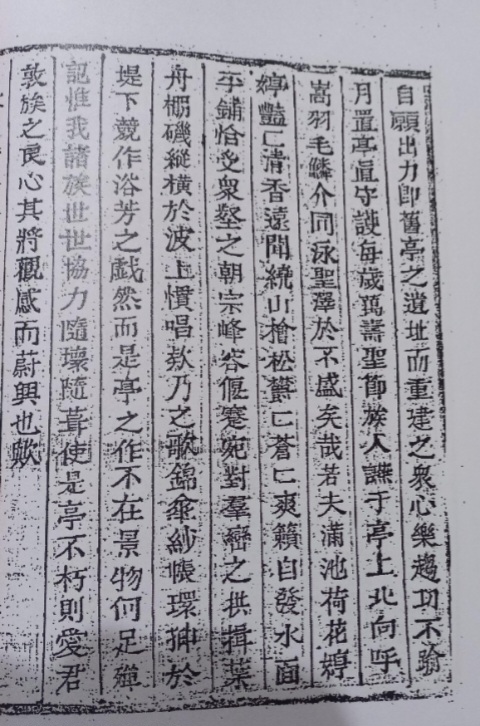 自願出力卽舊亭之遺址而重建之衆心樂趨功不踰
月置亭直守護每歲萬壽聖節族人讌于亭上北向呼
嵩羽毛鱗介同泳聖澤於不盛矣哉若夫滿池荷花娉
婷豔匕清香遠聞繞山檜松欝匕蒼匕爽籟自發水面
平鋪恰受衆壑之朝宗峰容偃蹇宛對羣巒之拱揖葉
舟棚磯縱橫於波上慣唱欸乃之歌錦傘紗帳環抻於
堤下競作浴芳之戱然而是亭之作不在景物何足殫
記惟我諸族世世協力隨壞隨葺使是亭不朽則愛君
敦族之良心其將觀感而蔚興也歟